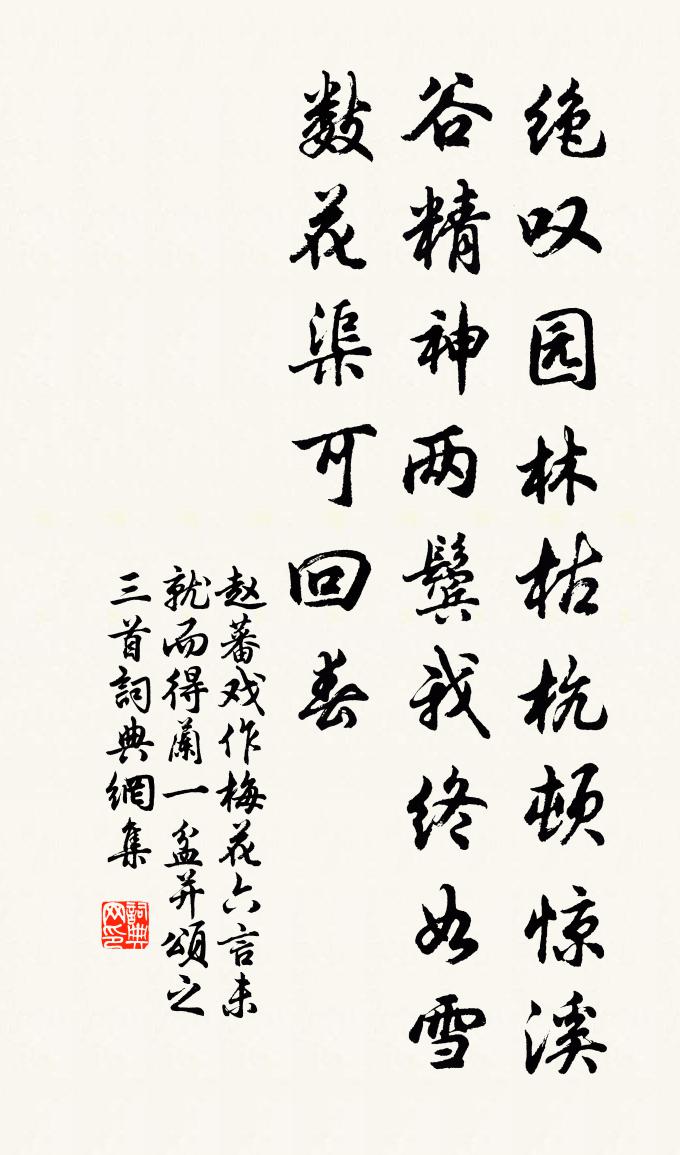 绝叹园林枯杭顿惊溪
谷精神两鬓我终如雪
数花渠可回春
赵蕃戏作梅花六言未
就而得蘭一盆并頌之
三首詞典網集
詞典网印